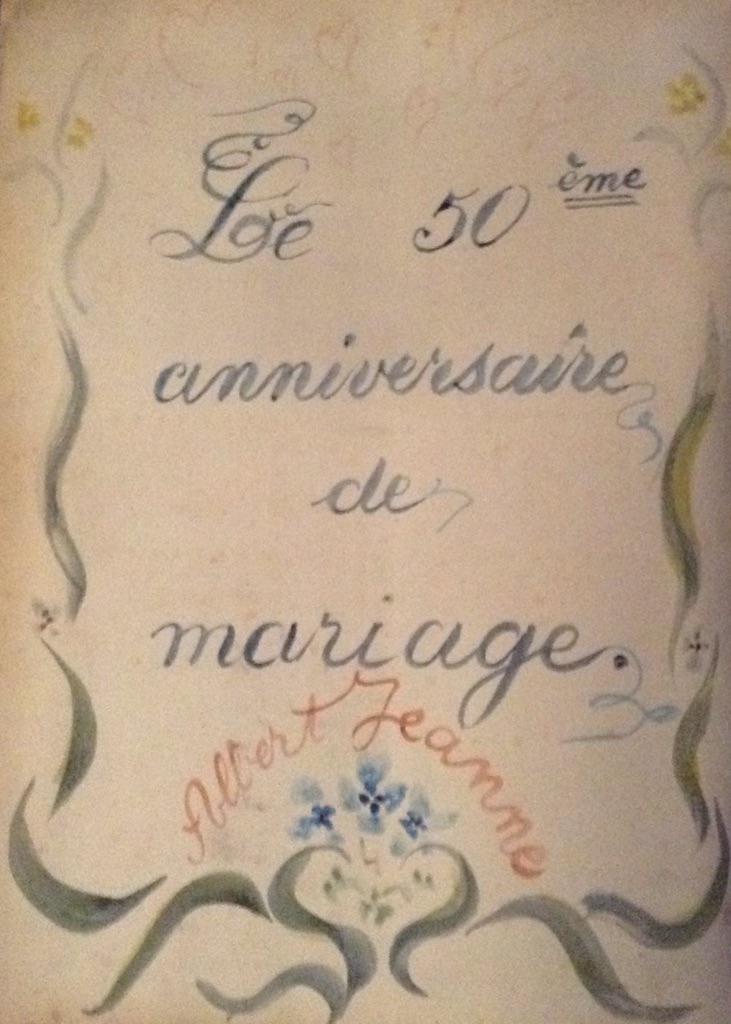 Le 50ème
anniversaire
de
mariage.
Albert Jeanne